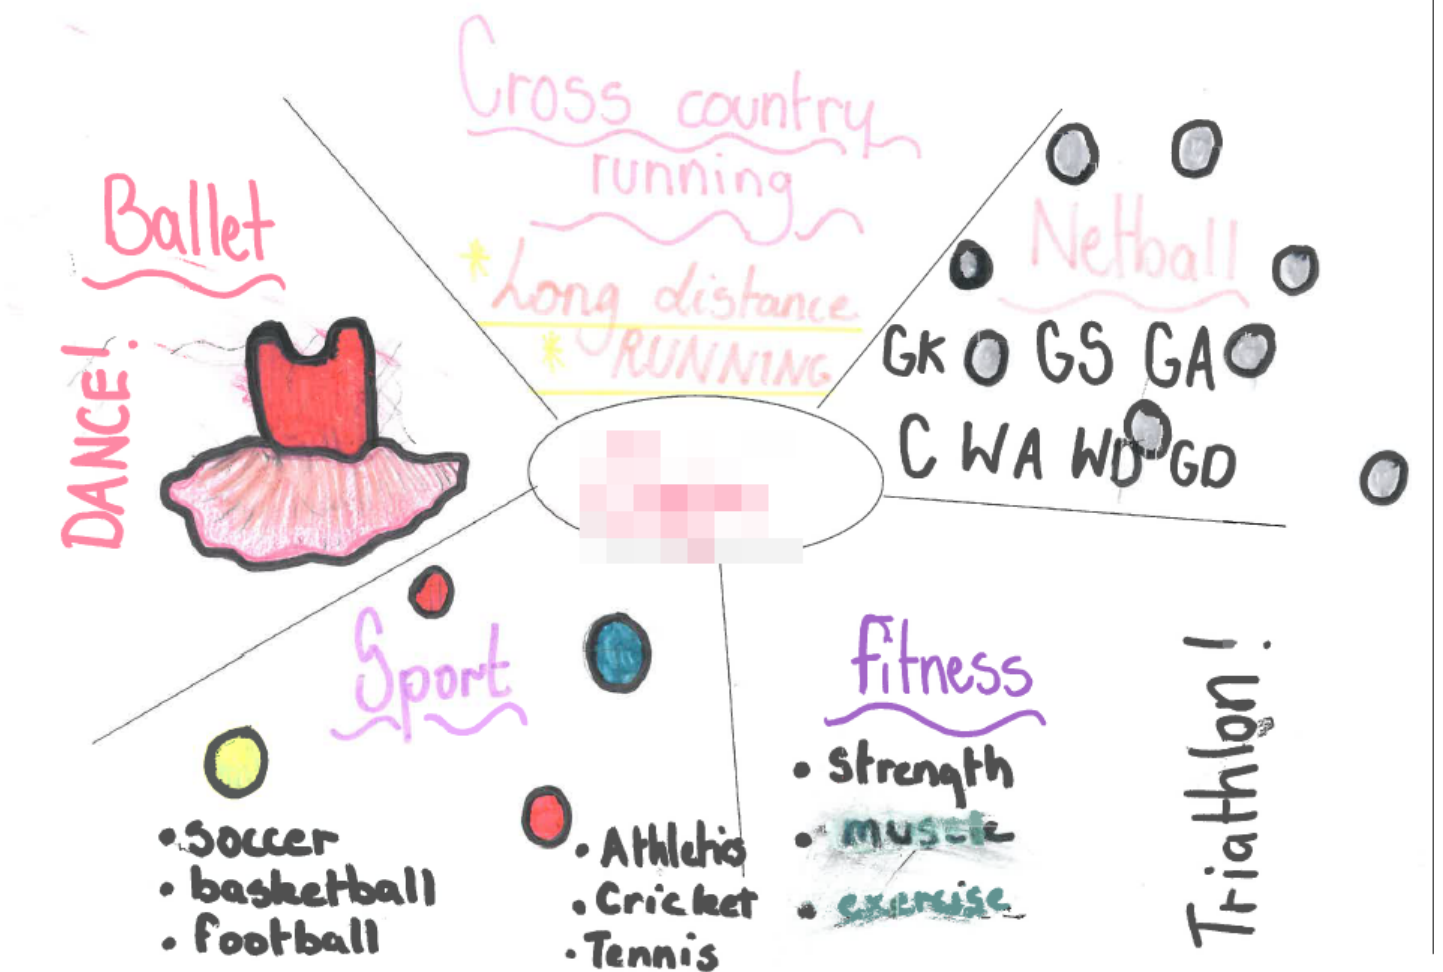 Cross country
running
* Long distance
* RUNNING
Ballet
DANCE!
Netball
GK GS GA
C WA WD GD
Sport
• Soccer
• basketball
• football
• Athletics
• Cricket
• Tennis
fitness
• Strength
• muscle
• exercise
Triathlon!